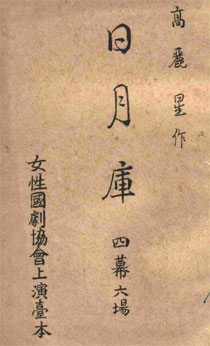 高麗星作
日月庫 四幕六場
女性國劇協會上演臺本